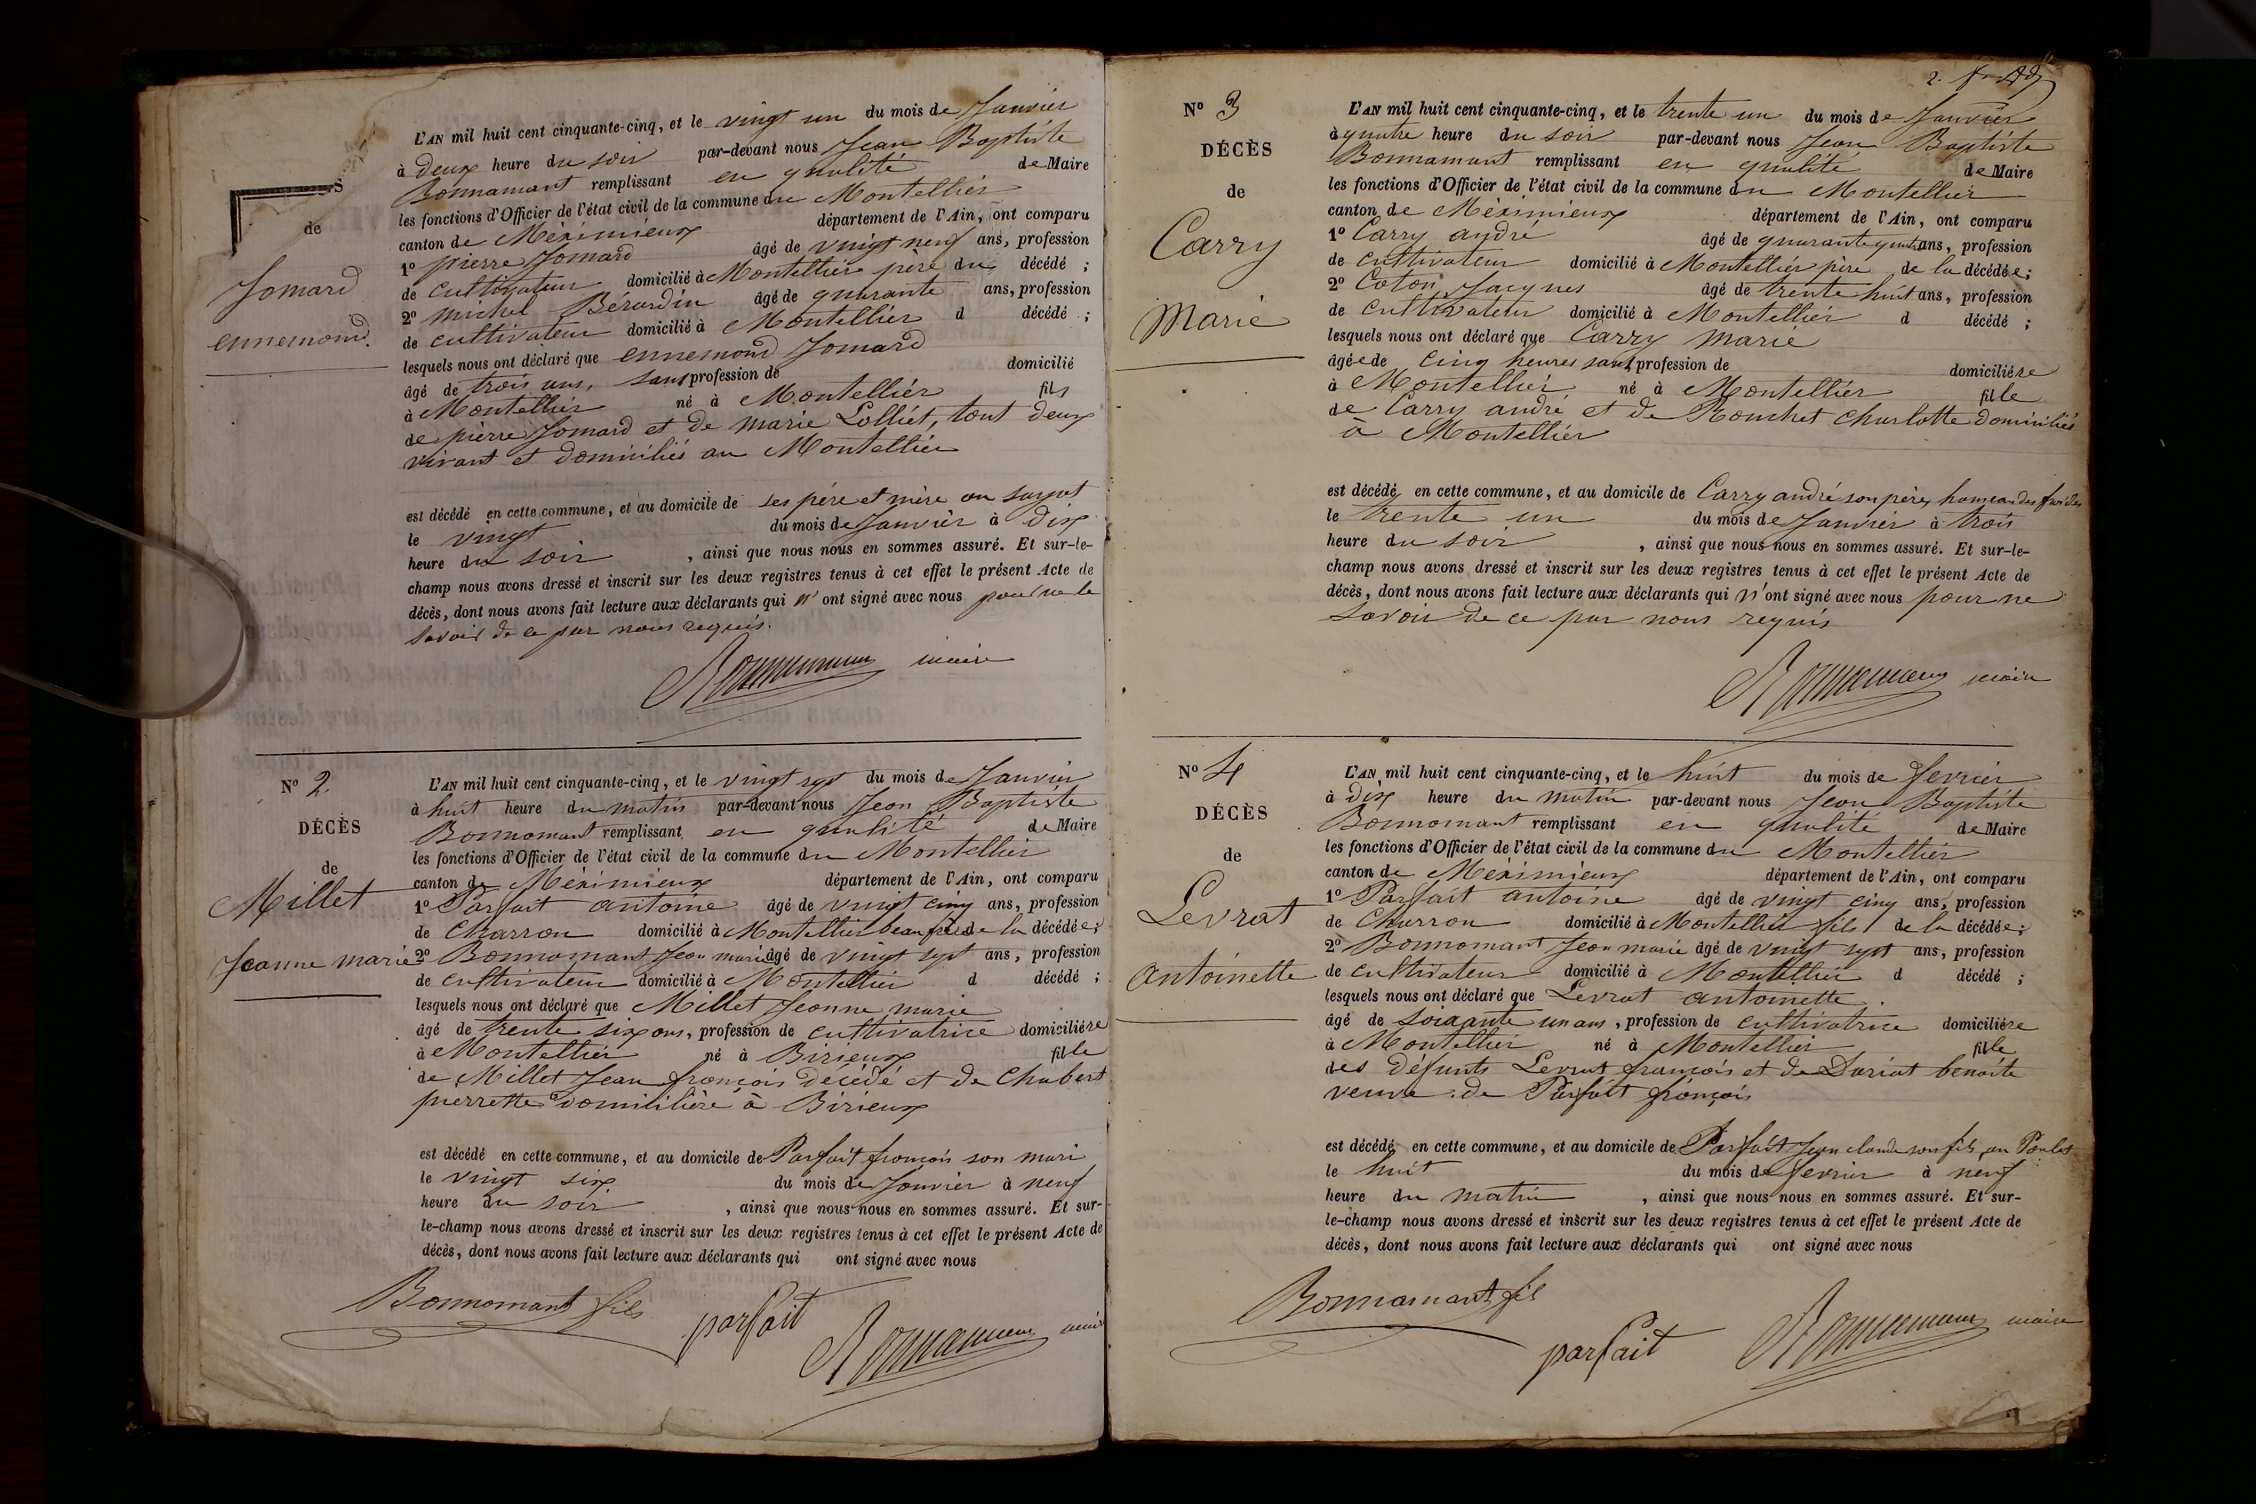 S
de
Jomard
ennemond.
L'AN mil huit cent cinquante-cinq, et le vingt un du mois de Janvier
à deux heure du soir par-devant nous Jean Baptiste
Bonnamant remplissant en qualité de Maire
les fonctions d'Officier de l'état civil de la commune du Montellier
canton de Méximieux département de l'Ain, ont comparu
1º pierre Jomard âgé de vingt neuf ans, profession
de cultivateur domicilié à Montellier père du décédé ;
2º michel Bérardin âgé de quarante ans, profession
de cultivateur domicilié à Montellier d décédé ;
lesquels nous ont déclaré que ennemond Jomard
âgé de trois ans, sans profession de domicilié
à Montellier né à Montellier fils
de pierre Jomard et de marie Lolliét, tout deux
vivant et domiciliés au Montellier
est décédé en cette commune, et au domicile de ses pére et mère au
le vingt du mois de Janvièr à dix
heure du soir , ainsi que nous nous en sommes assuré. Et sur-le-
champ nous avons dressé et inscrit sur les deux registres tenus à cet effet le présent Acte de
décès, dont nous avons fait lecture aux déclarants qui n' ont signé avec nous pour ne le
savoir de ce par nous requis.
Bonnamant maire
Nº 2
DÉCÈS
de
Millet
Jeanne marie
L'AN mil huit cent cinquante-cinq, et le vingt sept du mois de Janvier
à huit heure du matin par-devant nous Jean Baptiste
Bonnomant remplissant en qualité de Maire
les fonctions d'Officier de l'état civil de la commune du Montellier
canton de Méximieux département de l'Ain, ont comparu
1º Parfait antoine âgé de vingt cinq ans, profession
de charron domicilié à Montellier beau frère de la décédée ;
2º Bonnomant Jean marie âgé de vingt sept ans, profession
de cultivateur domicilié à Montellier d décédé ;
lesquels nous ont déclaré que Millet Jeanne marie
âgé de trente six ans, profession de cultivatrice domiciliére
à Montellier né à Birieux fille
de Millet Jean françois décédé et de Chabert
pierrette domiciliére à Birieux
est décédé en cette commune, et au domicile de Parfait françois son mari
le vingt six du mois de Janvier à neuf
heure du soir , ainsi que nous nous en sommes assuré. Et sur-
le-champ nous avons dressé et inscrit sur les deux registres tenus à cet effet le présent Acte de
décès, dont nous avons fait lecture aux déclarants qui ont signé avec nous
Bonnomant fils parfait Bonnamant maire
2.
Nº 3
DÉCÈS
de
Carry
Marie
L'AN mil huit cent cinquante-cinq, et le trente un du mois de Janvier
à quatre heure du soir par-devant nous Jean Baptiste
Bonnamant remplissant en qualité de Maire
les fonctions d'Officier de l'état civil de la commune du Montellier
canton de Méximieux département de l'Ain, ont comparu
1º Carry andré âgé de quarante quatre ans, profession
de cultivateur domicilié à Montellier père de la décédée ;
2º Coton Jacques âgé de trente huit ans, profession
de cultivateur domicilié à Montellier d décédé ;
lesquels nous ont déclaré que Carry Marie
âgée de cinq heures sans profession de domiciliére
à Montellier né à Montellier fille
de Carry andré et de Bouchet charlotte domiciliés
à Montellier
est décédé en cette commune, et au domicile de Carry andré son père, hameau des
le trente un du mois de Janvier à trois
heure du soir , ainsi que nous nous en sommes assuré. Et sur-le-
champ nous avons dressé et inscrit sur les deux registres tenus à cet effet le présent Acte de
décès, dont nous avons fait lecture aux déclarants qui n'ont signé avec nous pour ne
savoir de ce par nous requis
Bonnamant maire
Nº 4
DÉCÈS
de
Levrat
antoinette
L'AN mil huit cent cinquante-cinq, et le huit du mois de fevrier
à dix heure du matin par-devant nous Jean Baptiste
Bonnomant remplissant en qualité de Maire
les fonctions d'Officier de l'état civil de la commune du Montellier
canton de Méximieux département de l'Ain, ont comparu
1º Parfait antoine âgé de vingt cinq ans, profession
de charron domicilié à Montellier fils de la décédée ;
2º Bonnomant Jean marie âgé de vingt sept ans, profession
de cultivateur domicilié à Montellier d décédé ;
lesquels nous ont déclaré que Levrat antoinette
âgé de soixante un ans, profession de cultivatrice domiciliére
à Montellier né à Montellier fille
des défunts Levrat françois et de Dariat benoite
veuve de Parfait françois
est décédé en cette commune, et au domicile de Parfait Jean claude son fils, au
le huit du mois de fevrier à neuf
heure du matin , ainsi que nous nous en sommes assuré. Et sur-
le-champ nous avons dressé et inscrit sur les deux registres tenus à cet effet le présent Acte de
décès, dont nous avons fait lecture aux déclarants qui ont signé avec nous
Bonnamant fils parfait Bonnamant maire